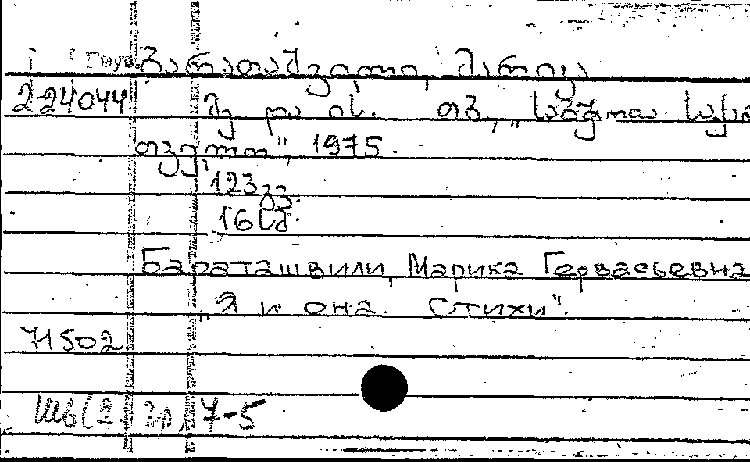 ბარათაშვილი, მარიკა
224044 მე და ის. თბ., „საბჭოთა საქა
თველო", 1975.
123გვ.
16სმ.
Бараташвили, Марика Гервасьевна
„Я и она. Стихи".
71502
7-5